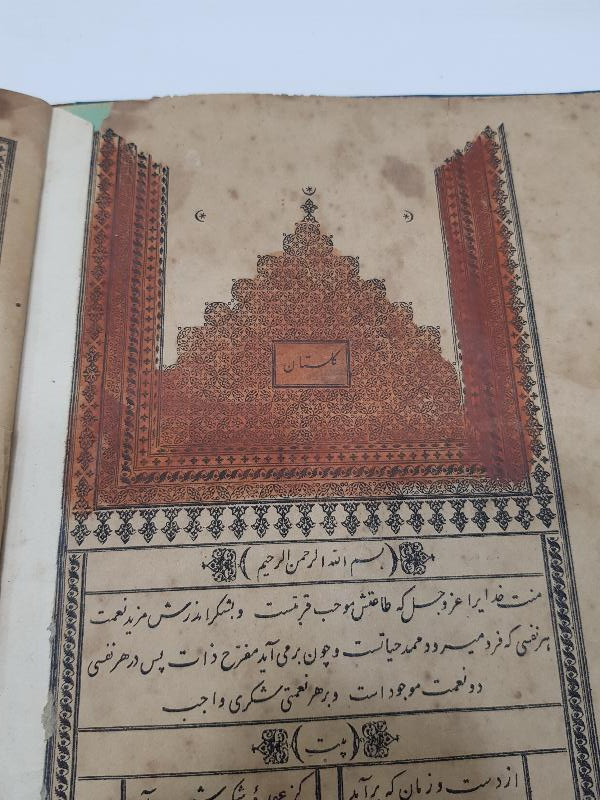 گلستان
بسم الله الرحمن الرحیم
منت خدایرا عزوجل که طاعتش موجب قربتست و بشکر اندرش مزید نعمت
هر نفسی که فرو میرود ممد حیاتست و چون بر می آید مفرح ذات پس در هر نفسی
دو نعمت موجود است و بر هر نعمتی شکری واجب
بیت
از دست و زبان که برآید کز عهده شکرش بدر آید